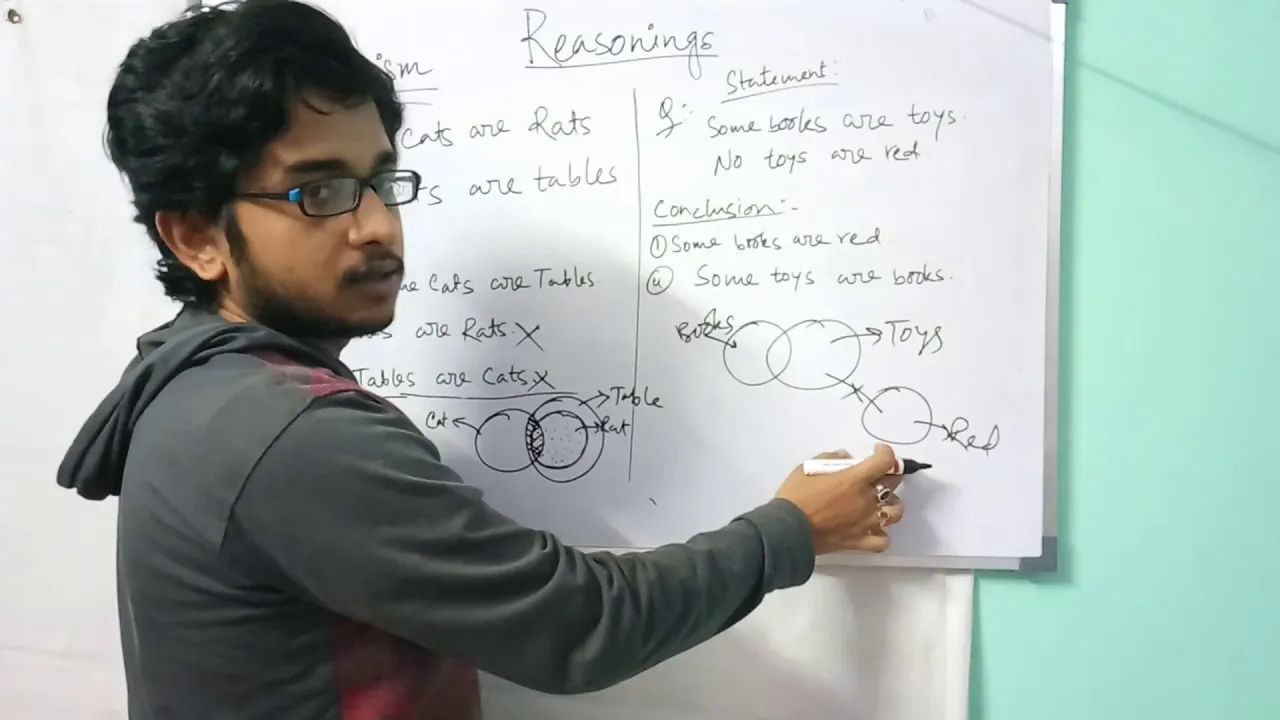 Reasonings
ism
Cats are Rats
ts are tables
me Cats are Tables.
are Rats. X
Tables are Cats. X
Cat
Table
Rat
Statement:
Q: Some books are toys.
No toys are red.
Conclusion:-
(i) Some books are red.
(ii) Some toys are books.
Books
Toys
Red